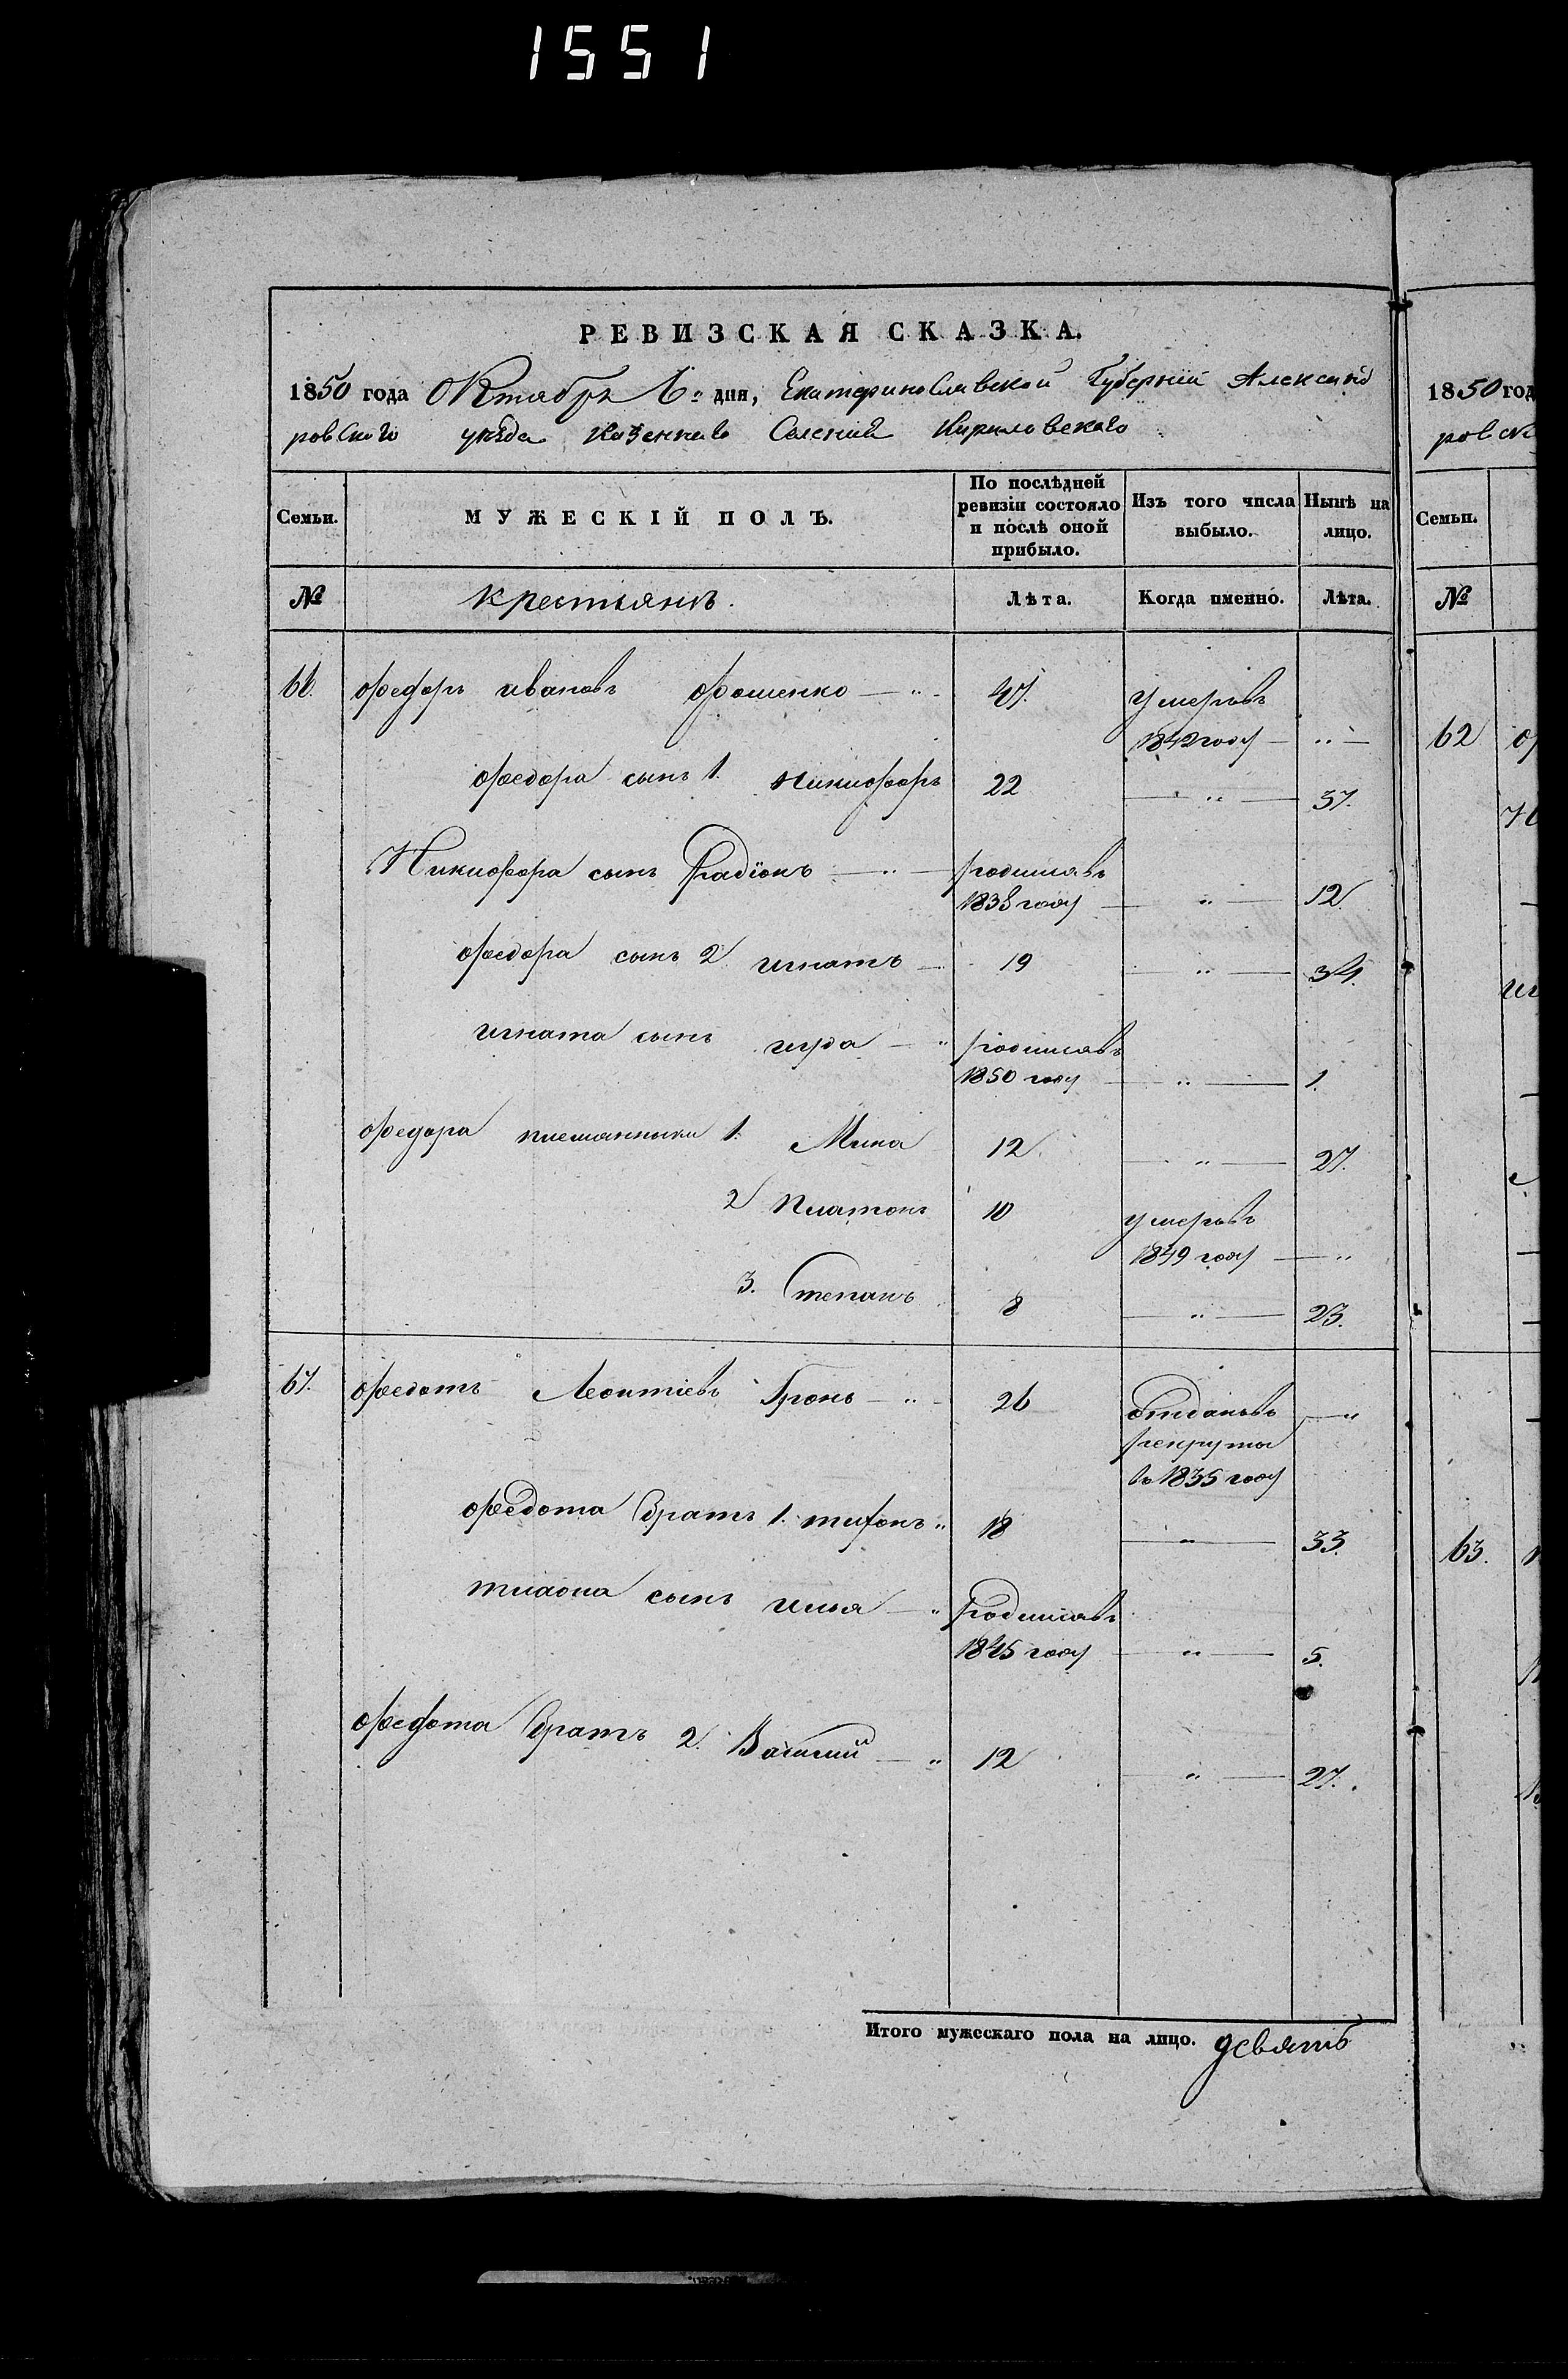 1551
РЕВИЗСКАЯ СКАЗКА.
1850 года Октября 6" дня, Екатеринославской Губернiи Александ
ровского уезда Казеннаго Селенiя Кириловскаго
Семьи. МУЖЕСКІЙ ПОЛЪ. По послѣдней ревизіи состояло и послѣ оной прибыло. Изъ того числа выбыло. Нынѣ на лицо.
№ крестьянъ. Лѣта. Когда именно. Лѣта.
66. Федоръ ивановъ Фоменко — " - 47. умеръвъ
1842 году — " —
Федора сынъ 1. никифоръ 22 — " — 37.
Никифора сынъ Радiонъ — " — родилсявъ
1838 году — " — 12
Федора сынъ 2 игнатъ — 19 — " — 34.
игната сынъ — " родилсявъ
1850 году — " — 1.
Федора племянники 1. Мина 12. — " — 27.
2 Платонъ 10 умеръвъ
1849 году — "
3. Степанъ 8 — " — 23.
67. Федотъ Леонтiевъ Гронь — " - 26 Отданъвъ — "
рекруты
въ 1835 году
Федота братъ 1. " 18 — " — 33.
сынъ илья — " Родилсявъ
1845 году — " — 5.
Федота братъ 2. Василий — " 12 — " — 27.
Итого мужескаго пола на лицо. девять
1850 год
ровск
Семьи.
№
62
63.